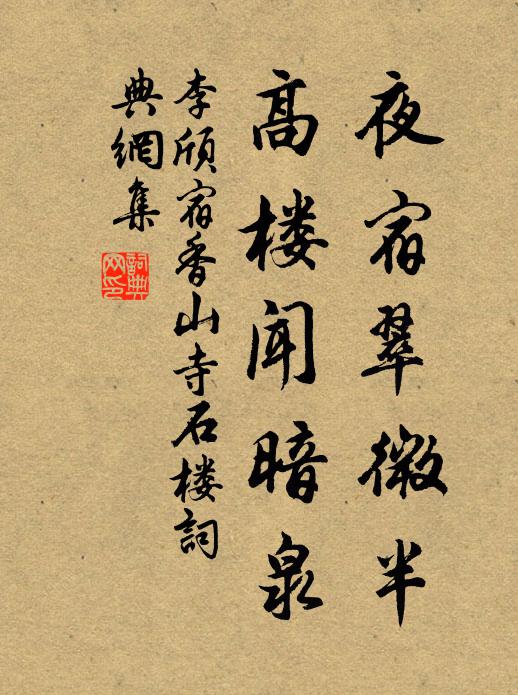 夜宿翠微半
高楼聞暗泉
李頎宿香山寺石楼詞
典網集
詞典網印